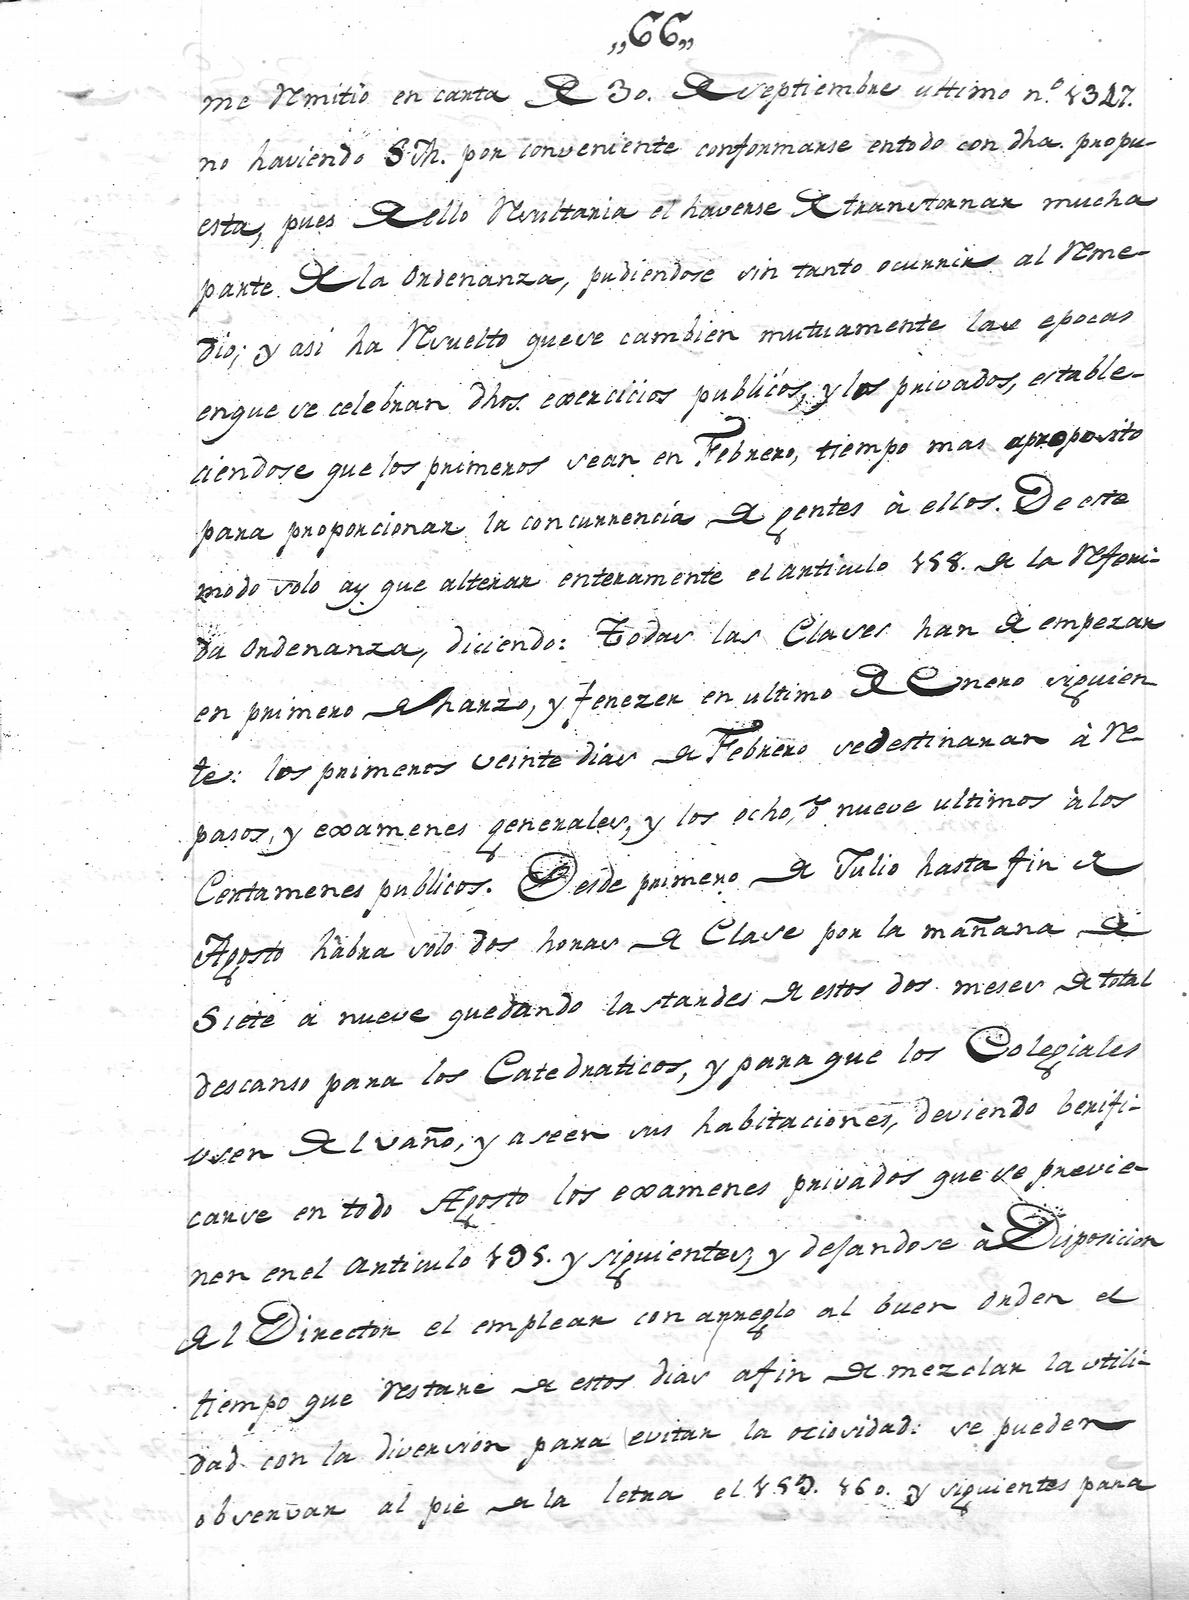 „66„
me Remitio en carta de 30. de septiembre ultimo n.º 1347.
no haviendo S. M. por conveniente conformarse entodo con dha. propu-
esta, pues de ello Resultaria el haverse de transtornar mucha
parte de la Ordenanza, pudiendose sin tanto ocurrir al Reme-
dio; y asi ha Resuelto quese cambien mutuamente las epocas
enque se celebran dhos. exercicios publicos, y los privados, estable-
ciendose que los primeros sean en Febrero, tiempo mas aproposito
para proporcionar la concurrencia de gentes à ellos. De este
modo solo ay que alterar enteramente el articulo 158. de la Referi-
da Ordenanza, diciendo: Todas las Clases han de empezar
en primero de Marzo, y fenezer en ultimo de Enero siguien
te: los primeros veinte dias de Febrero sedestinaran à Re-
pasos, y examenes generales, y los ocho, ò nueve ultimos à los
Certamenes publicos. Desde primero de Julio hasta fin de
Agosto habra solo dos horas de Clase por la mañana de
Siete a nueve quedando las tardes de estos dos meses de total
descanso para los Catedraticos, y para que los Colegiales
usen del vaño, y aseen sus habitaciones, deviendo berifi-
carse en todo Agosto los examenes privados que se previe-
nen enel Articulo 195. y siguientes, y dejandose à Disposicion
del Director el emplear con arreglo al buen orden el
tiempo que Restare de estos dias afin de mezclar la utili-
dad con la diversion para evitar la ociosidad: se pueden
observar al pie de la letra el 159. 160. y siguientes para